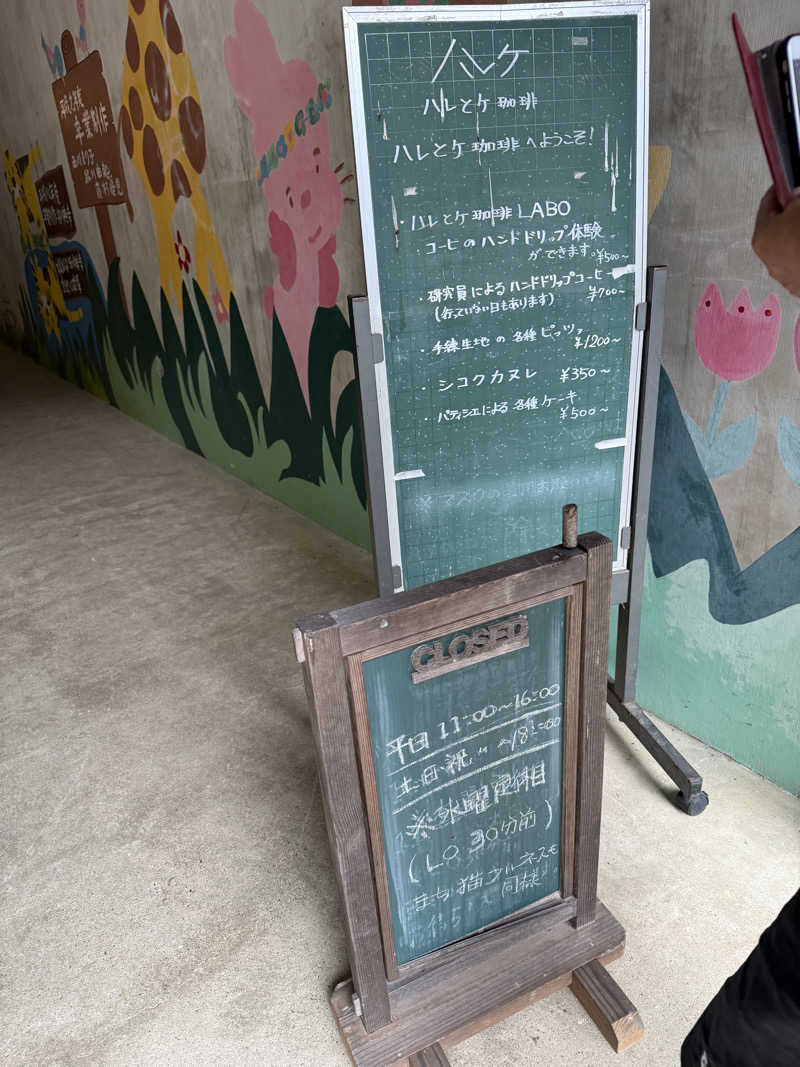 平成九年度
卒業制作
ハレケ
ハレとケ珈琲
ハレとケ珈琲へようこそ!
・ハレとケ珈琲 LABO
コーヒのハンドドリップ体験
ができます。¥500~
・研究員によるハンドドリップコーヒー
(行っていない日もあります) ¥700~
・手練生地の各種ピッツァ
¥1200~
・シコクカヌレ ¥350~
・パティシエによる各種ケーキ
¥500~
※マスクの
CLOSED
平日 11:00~16:00
土日祝 〃 ~18:00
※水曜定休日
(LO 30分前)
まち猫ウルネスも
同様。